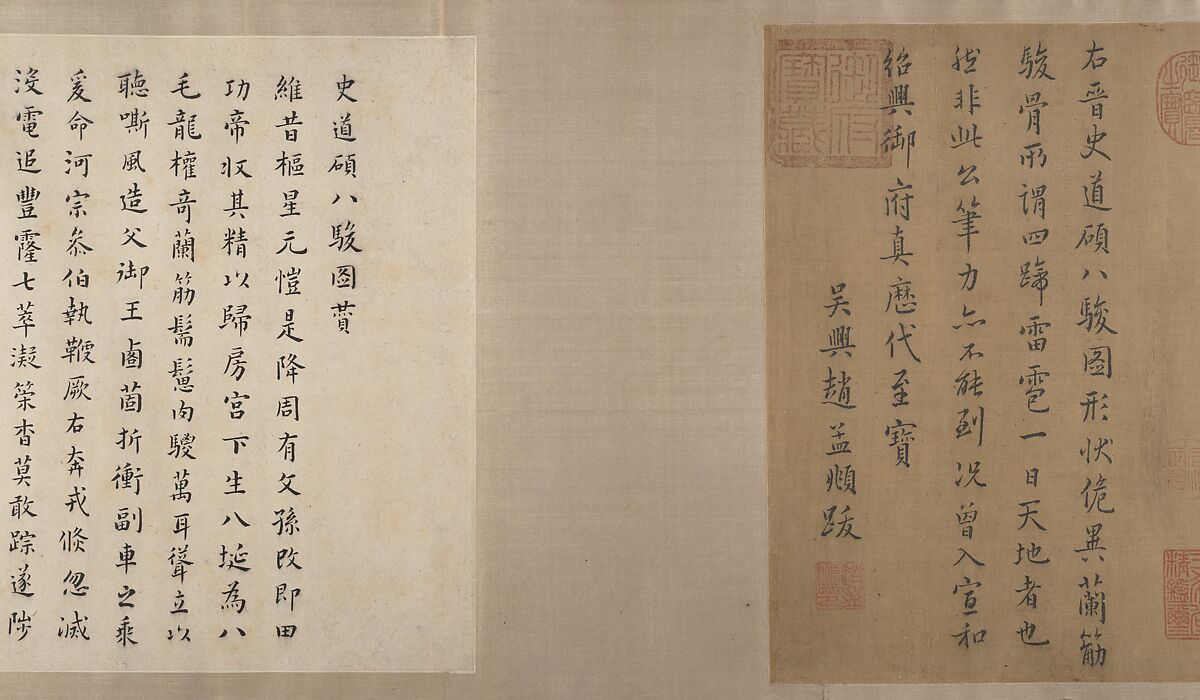 右晉史道碩八駿圖形狀佹異蘭筋
駿骨所謂四蹄雷雹一日天地者也
然非此公筆力亦不能到況曾入宣和
紹興御府真歷代至寶
吳興趙孟頫跋
御府寶藏
史道碩八駿圖贊
維昔樞星元愷是降周有文孫改即田
功帝収其精以歸房宮下生八埏為八
毛龍權奇蘭筋鬐鬣肉騣萬耳聳立以
聽嘶風造父御王𠧧茵折衝副車之乘
爰命河宗叅伯執鞭厥右奔戎倏忽滅
沒電追豐霳七萃凝䇿杳莫敢踪遂陟